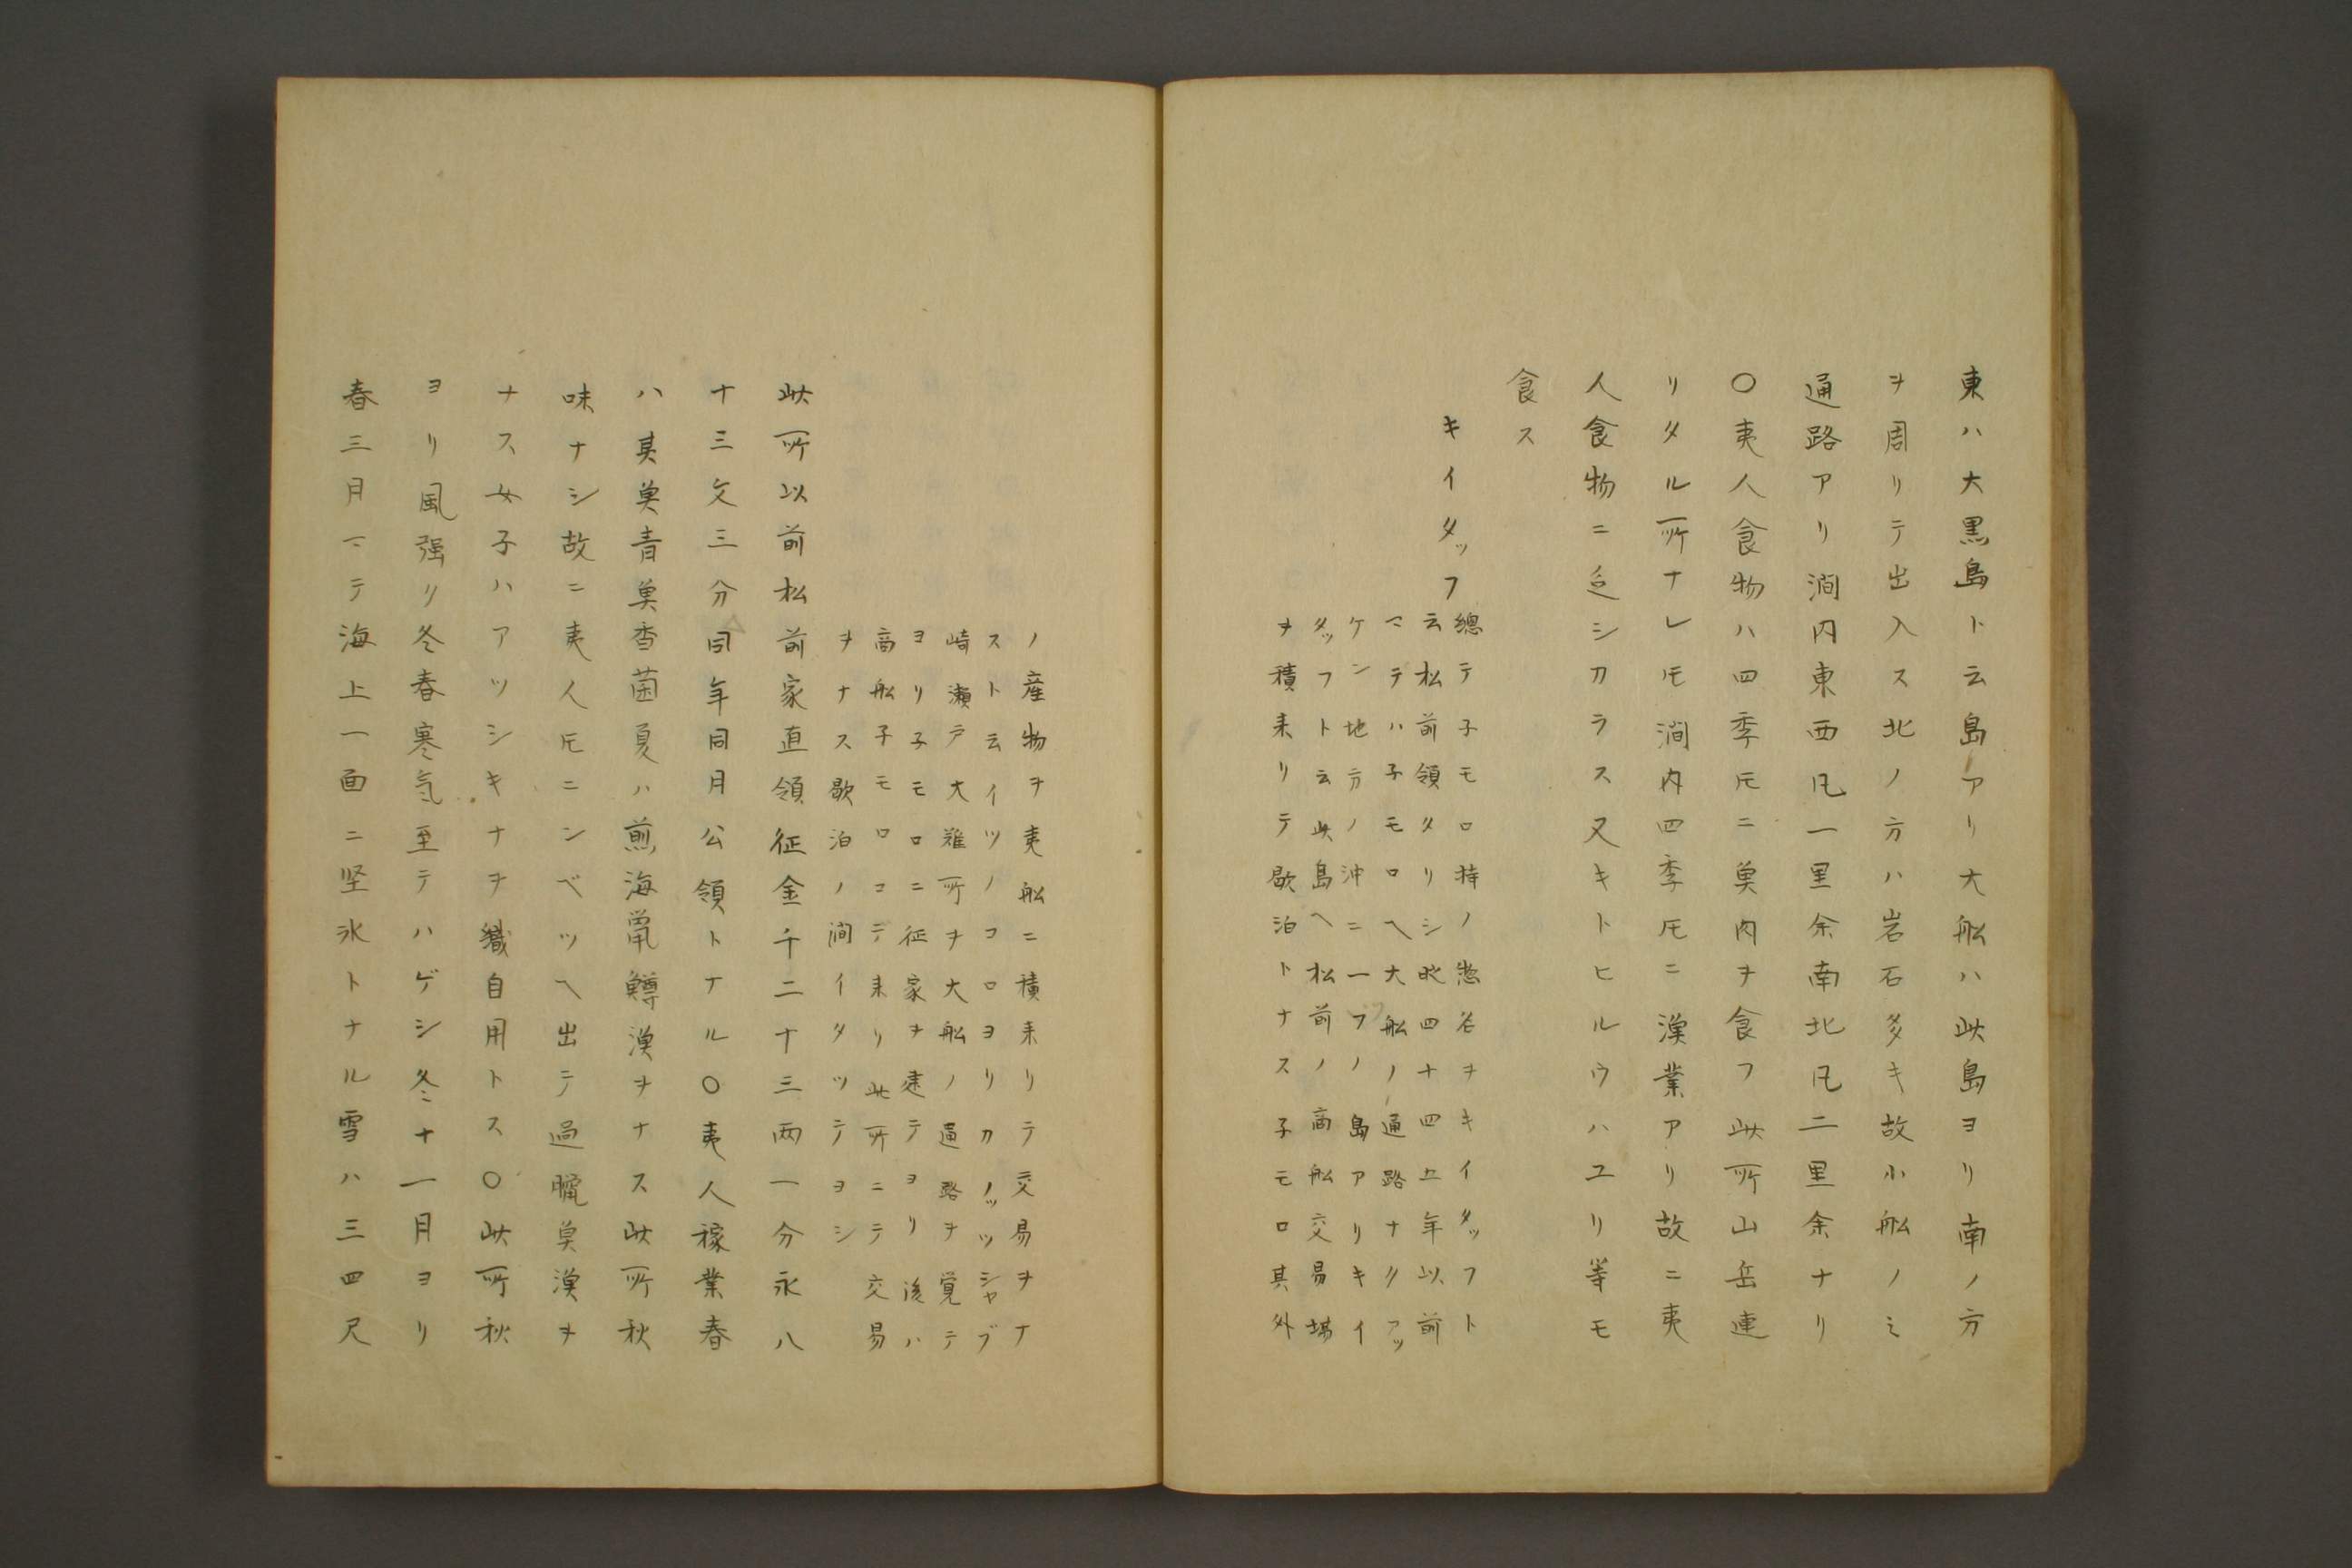 東ハ大黒島ト云島アリ大船ハ此島ヨリ南ノ方
ヲ周リテ出入ス北ノ方ハ岩石多キ故小船ノミ
通路アリ澗内東西凡一里余南北凡二里余ナリ
〇夷人食物ハ四季𪜈ニ魚肉ヲ食フ此所山岳連
リタル所ナレ𪜈澗内四季𪜈ニ漁業アリ故ニ夷
人食物ニ乏シカラス又キトヒルウハユリ等モ
食ス
キイタッフ
總テ子モロ持ノ惣名ヲキイタッフト
云松前領タリシ時四十四五年以前
マテハ子モロヘ大船ノ通路ナクアッ
ケシ地方ノ沖ニ一ツノ島アリキイ
タッフト云此島ヘ松前ノ商船交易場
ヲ積来リテ歇泊トナス子モロ其外
ノ産物ヲ夷船ニ積来リテ交易ヲナ
ストムイツノコロヨリカノッツシャブ
崎瀬戸大難所ヲ大船ノ通路ヲ覚テ
ヨリ子モロニ征家ヲ建テヨリ後ハ
商船子モロコテ来リ此所ニテ交易
ヲナス歇泊ノ澗イタッテヨシ
此所以前松前家直領征金千二十三両一分永八
十三文三分同年同月公領トナル〇夷人稼業春
ハ其魚青魚香菌夏ハ煎海鼠鱒漁ヲナス此所秋
味ナシ故ニ夷人𪜈ニシベツヘ出テ過臘魚漁ヲ
ナス女子ハアツシキナヲ織自用トス〇此所秋
ヨリ風强リ冬春寒気至テハゲシ冬十一月ヨリ
春三月マテ海上一面ニ坚氷トナル雪ハ三四尺